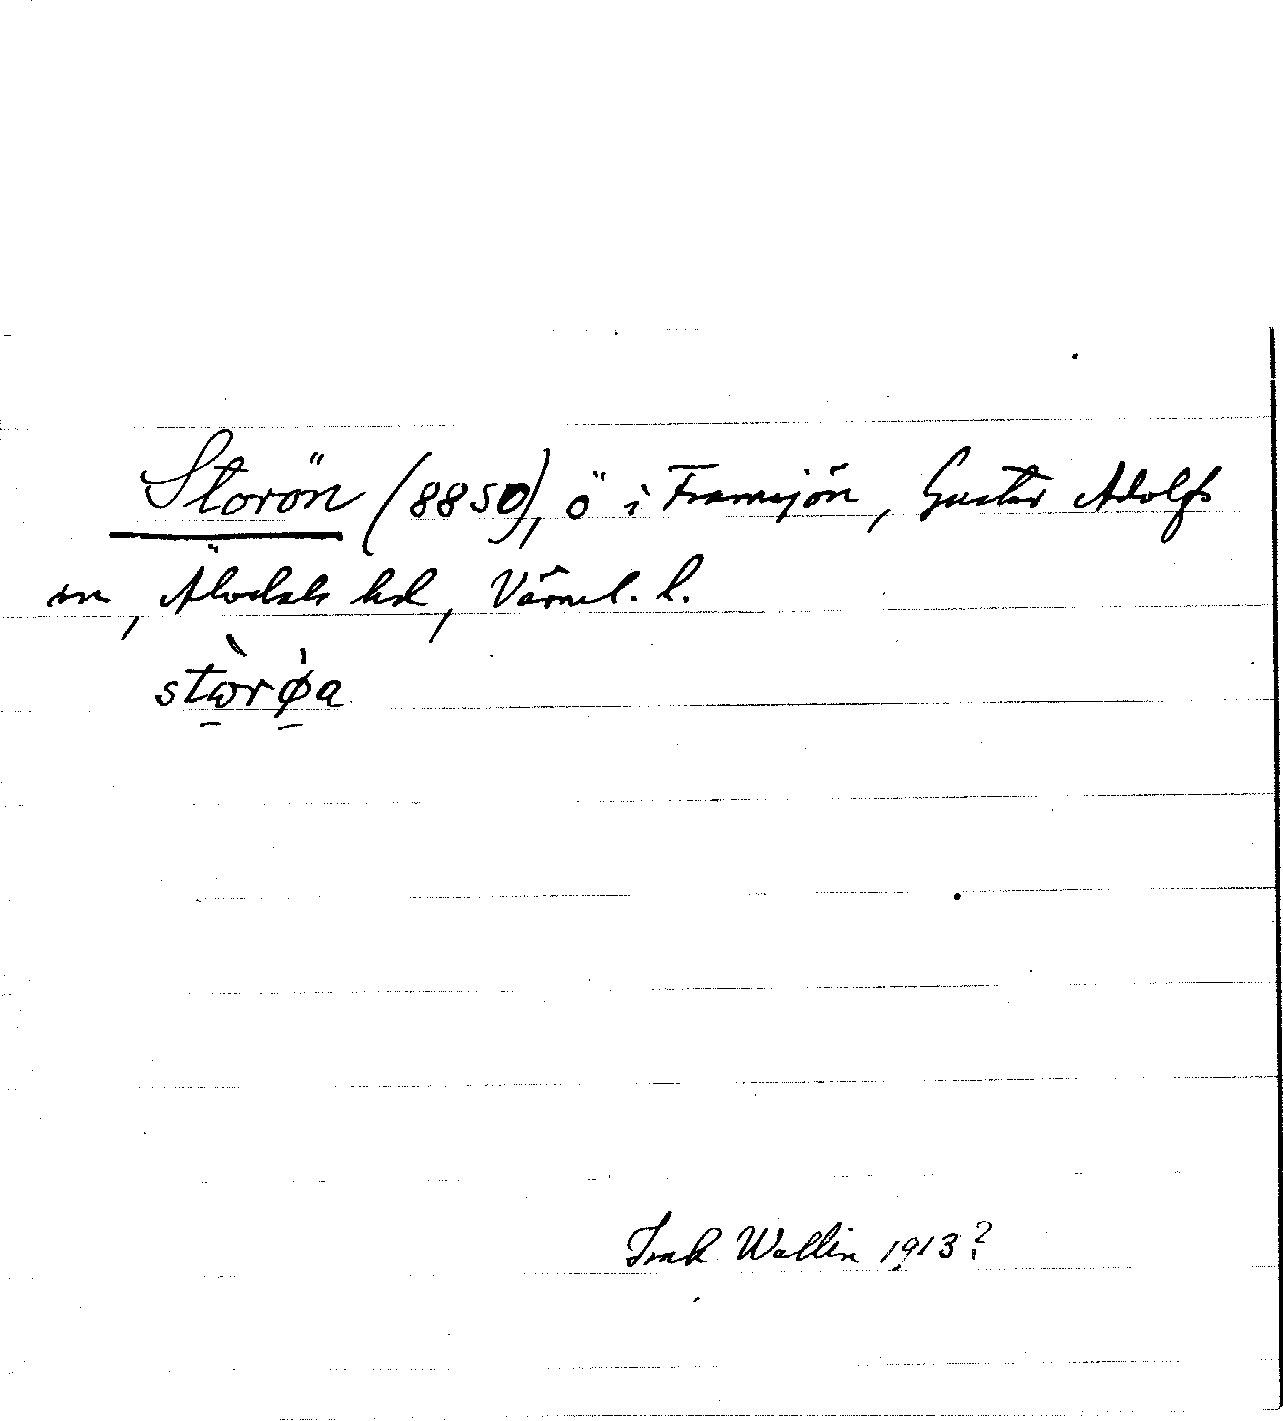 Storön (8850), ö i Framsjön, Gustav Adolfs
sn, Älvdals hd, Värml. l.
stὼrø̍a
Isak Wallin 1913?